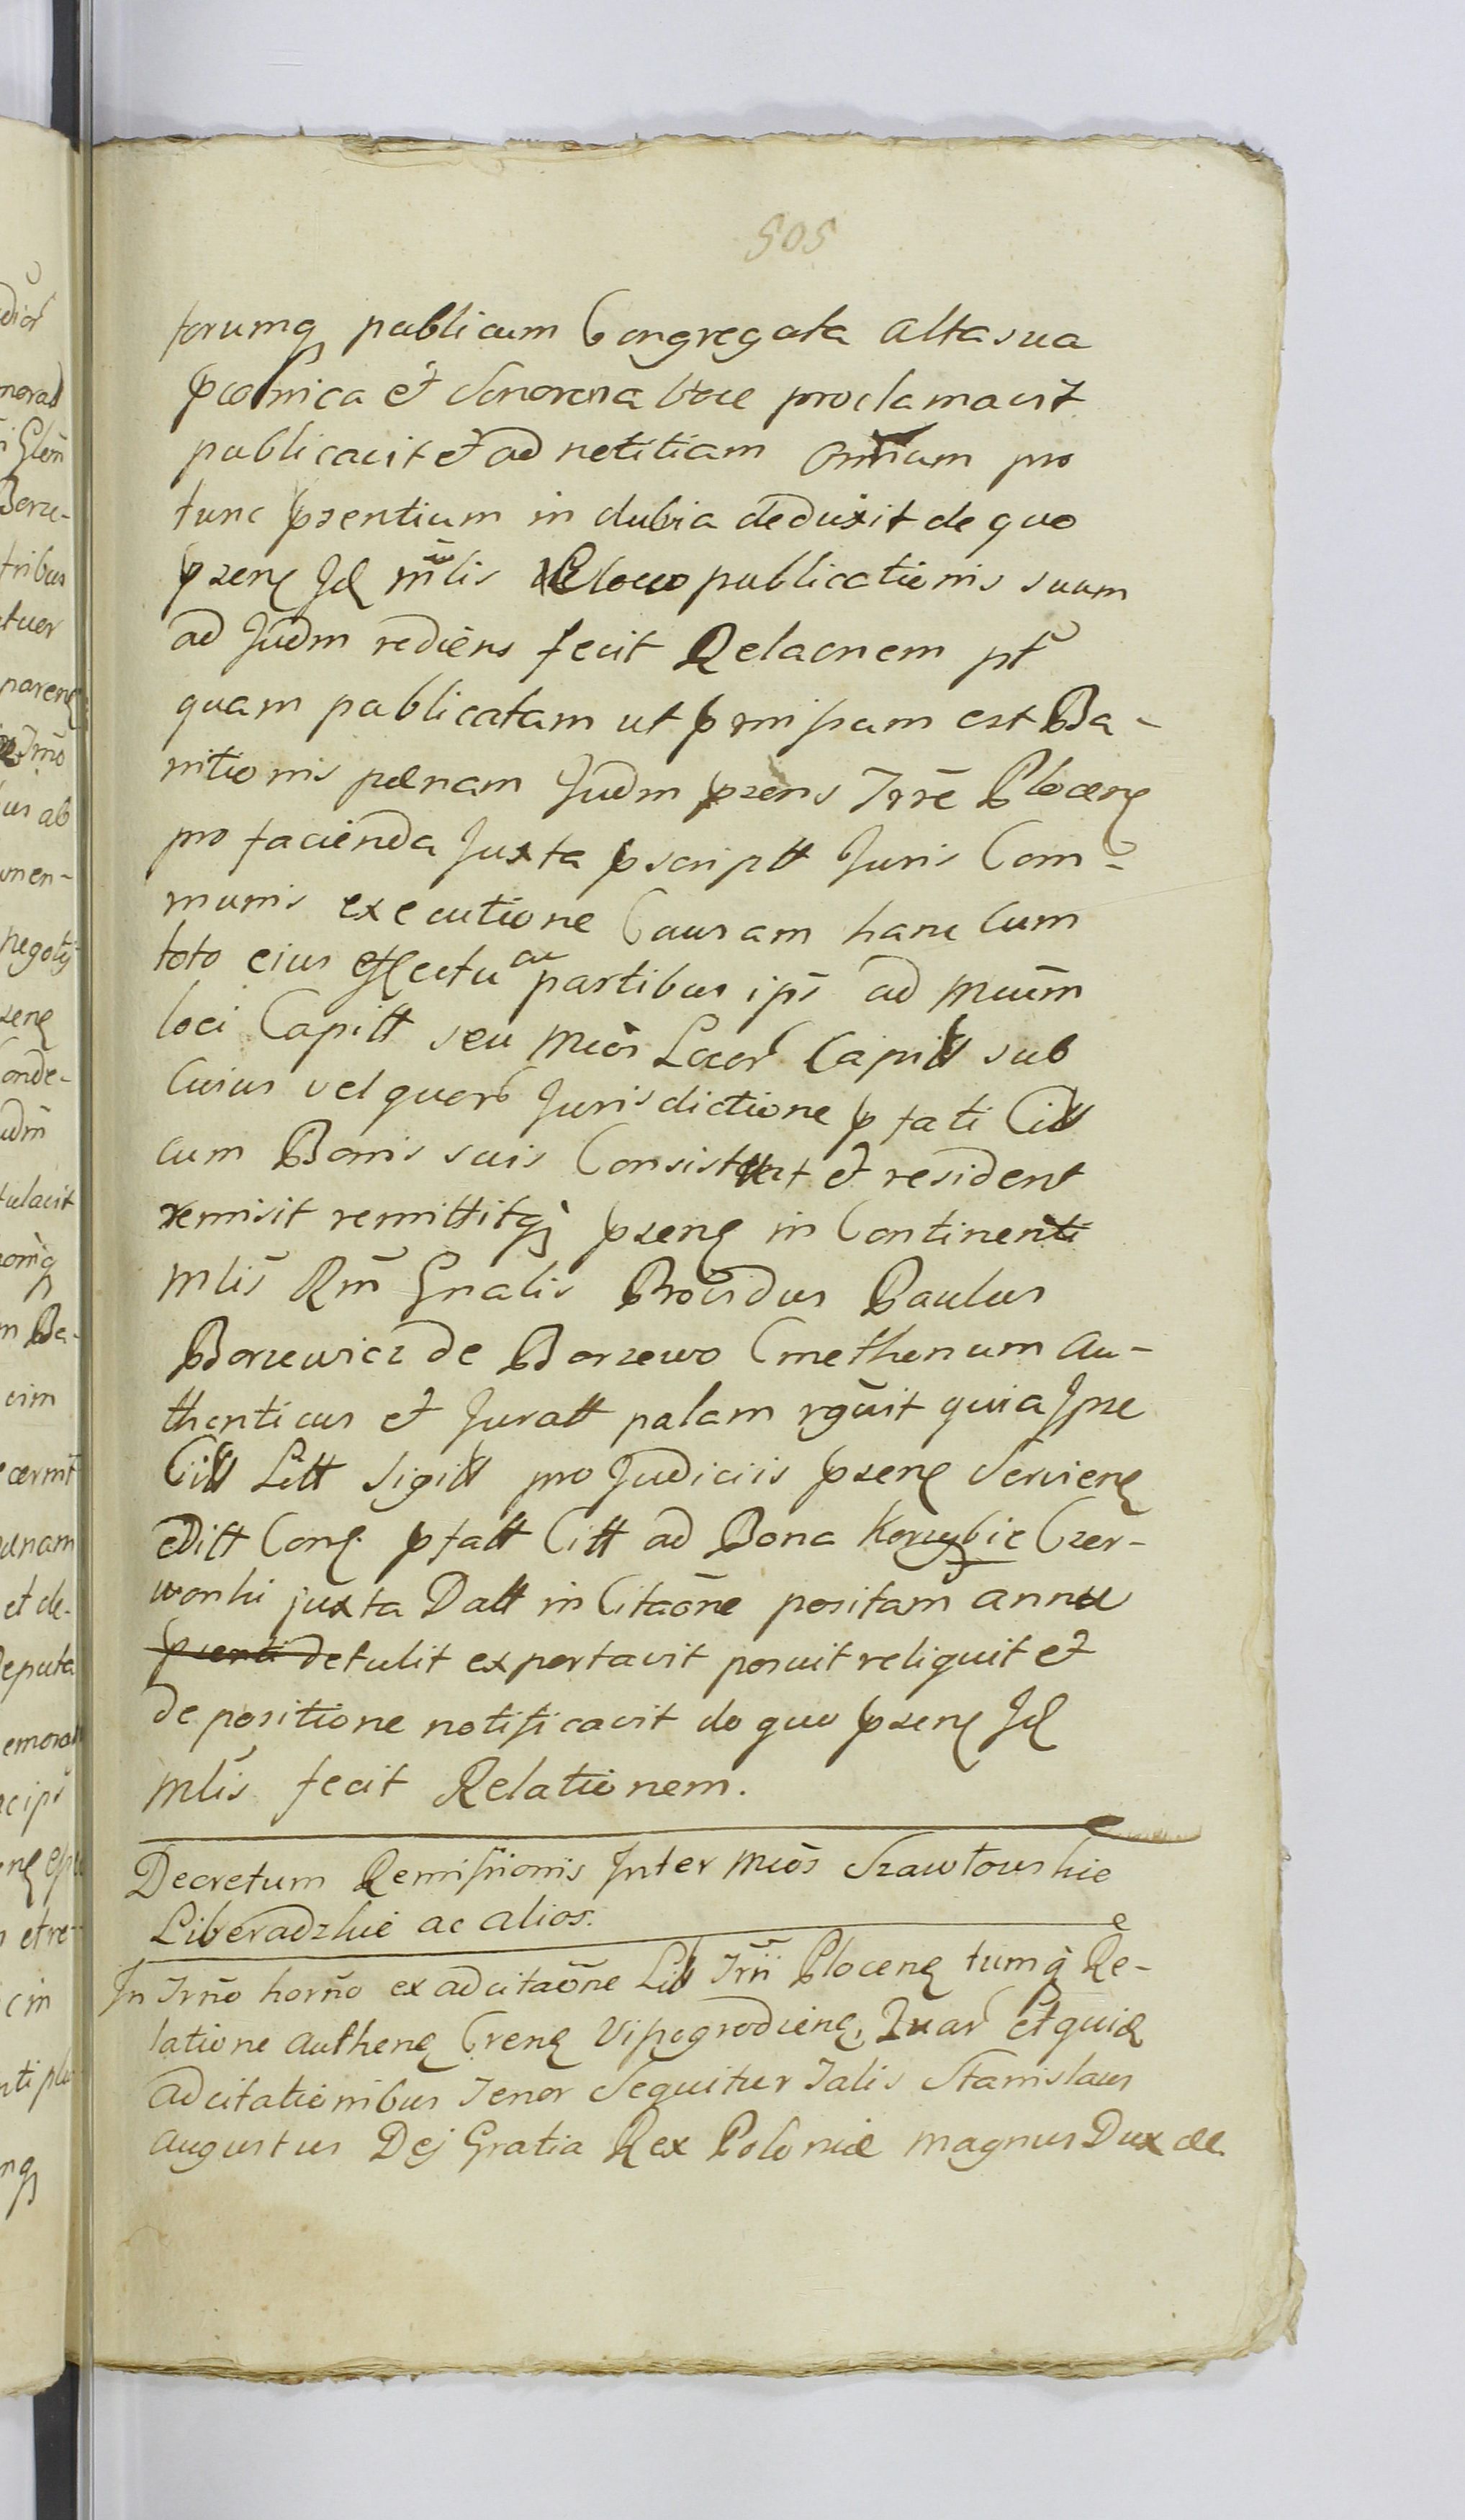 505
forumq publicum Congregata alta sua
pconica et Sonorosa Voce proclamavit
publicavit et ad notitiam omnium pro
tunc pzentium in dubia deduxit de quo
pzen Jd mlis de loco publicationis suam
ad Judm rediens fecit Relacnem pt
quam publicatam ut pmissum est Ba-
nitionis pænam Judm pzens Trre Plocen
pro facienda Juxta pscriptt Juris Com-
munis executione Causam hanc cum
toto eius effectu cu partibus ips ad mm
loci Capitt seu mcos Locor Capitt sub
cuius vel quor Jurisdictione pfati Citt
cum Bonis suis Consistunt et resident
remisit remittitq pzen in Continenti
Mlis Rni Gnalis Providus Paulus
Borzewicz de Borzewo Cmethonum au-
thenticus et Juratt palam rgvit quia Ipse
Citt Litt Sigitt pro Judiciis pzen Servien
editt Con pfatt Citt ad Bona Korzybie Czer-
wonki juxta Datt in Citaone positam annu
pzenti detulit exportavit posuit reliquit et
de positione notificavit de quo pzen Jd
Mlis fecit Relationem.
Decretum Remissionis Inter Mcos Szawłowskie
Liberadzkie ac alios.
In Trno horno ex adcitaone Litt Trri Plocen tumq Re-
latione authen Cren Vissogrodien, Quar Et quid
adcitationibus Tenor Sequitur Talis Stanislaus
augustus Dej Gratia Rex Poloniæ magnus Dux &c.